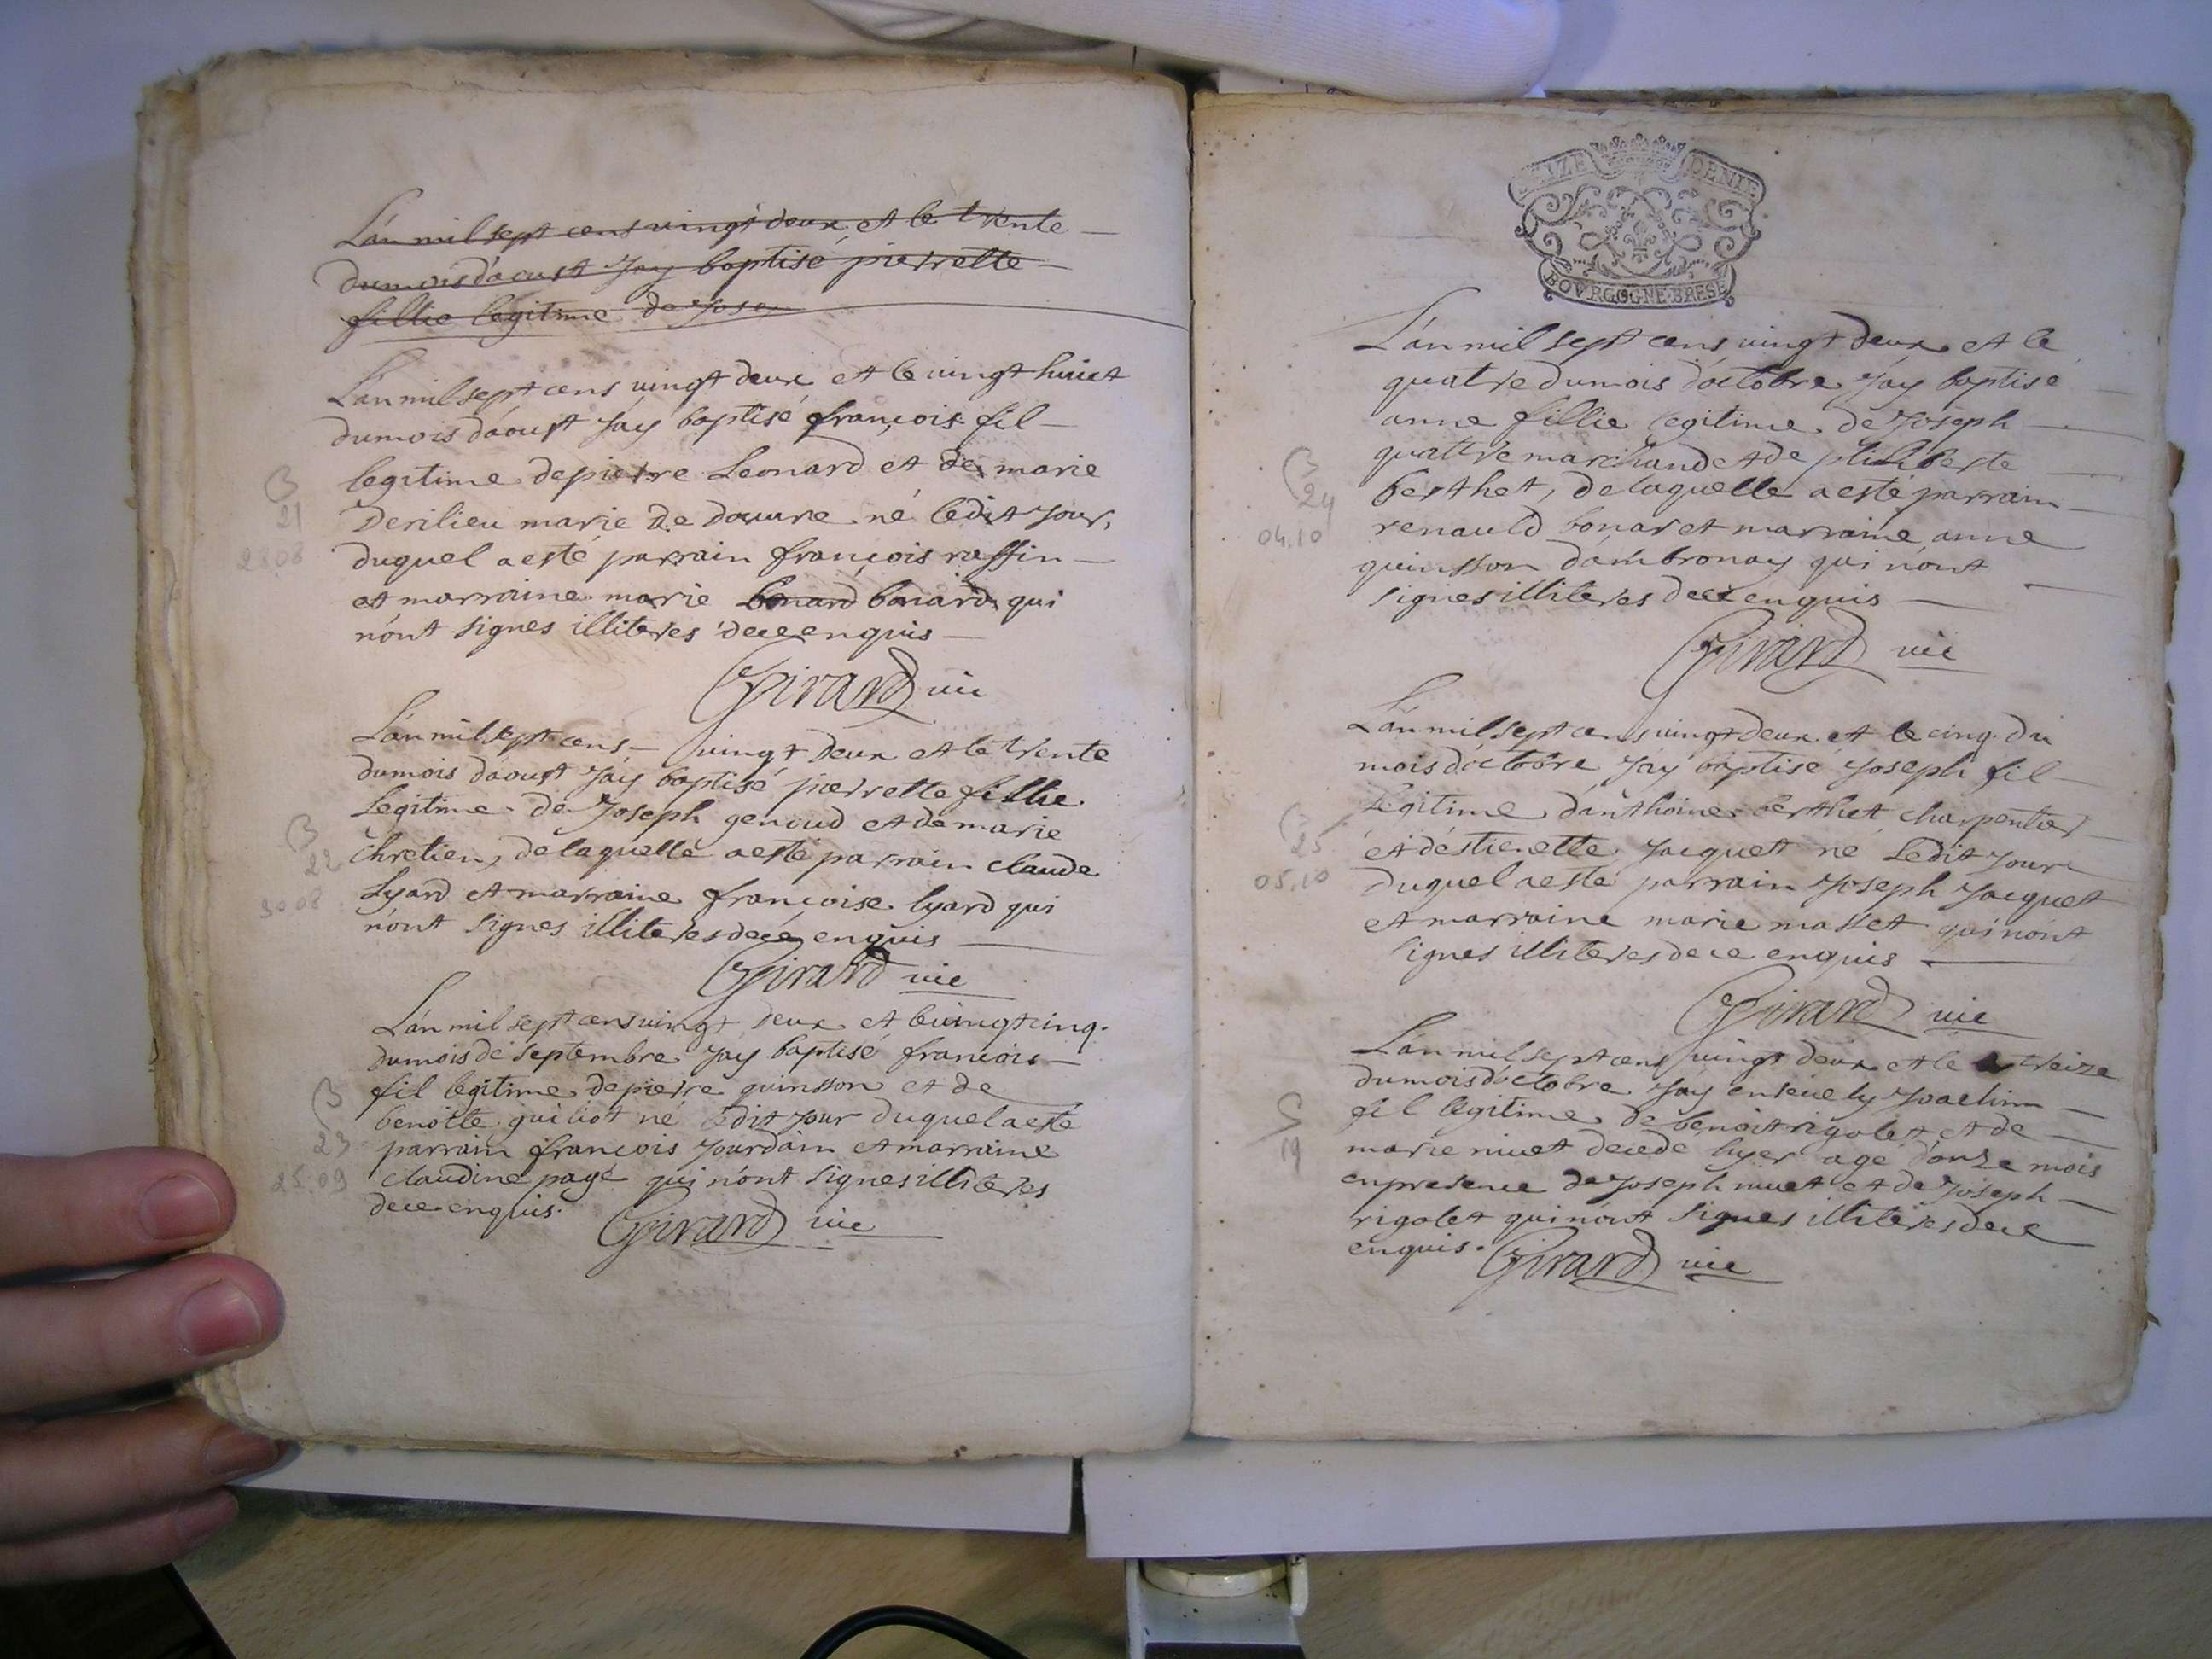 L'an mil sept cens vingt deux et le trente
du mois d'aoust J'ay baptisé pierrette
fillie legitime de Josep
L'an mil sept cens vingt deux et le vingt huict
du mois d'aoust J'ay baptisé françois fil
legitime de pierre Leonard et de marie
ne ledit Jour,
duquel a esté parrain françois ruffin
et marraine marie bonard bonard qui
n'ont signes illiteres de ce enquis
Girard vic
L'an mil sept cens vingt deux et le trente
du mois d'aoust J'ay baptisé pierrette fillie
Legitime de Joseph genoud et de marie
chretien, de laquelle a esté parrain claude
Lyard et marraine françoise lyard qui
n'ont signes illiteres de ce enquis
Girard vic
L'an mil sept cens vingt deux et le vingt cinq
du mois de septembre J'ay baptisé francois
fil legitime de pierre quinsson et de
benoite guichot né ledit Jour duquel a esté
parrain francois Jourdain et marraine
claudine page qui n'ont signes illiteres
de ce enquis.
Girard vic
B
21
28.08
B
22
30.08
B
23
25.09
SEIZE DENIE
BOVRGOGNE BRESE
L'an mil sept cens vingt deux et le
quatre du mois d'octobre J'ay baptisé
anne fillie legitime de Joseph
quattre marchand et de philiberte
berthet, de laquelle a esté parrain
renauld bonar et marraine anne
quinsson d'ambronay qui n'ont
signes illiteres de ce enquis
Girard vic
L'an mil sept cens vingt deux et le cinq du
mois d'octobre J'ay baptisé Joseph fil
Legitime d'anthoine berthet charpentier
et d'estienette Jacquet né Ledit Jour
duquel a esté parrain Joseph Jacquet
et marraine marie masset qui n'ont
signes illiteres de ce enquis
Girard vic
L'an mil sept cens vingt deux et le treize
du mois d'octobre J'ay ensevely Joachim
fil legitime de benoit rigolet et de
marie nivet decede hyer agé d'onze mois
en presence de Joseph nivet et de Joseph
rigolet qui n'ont signes illiteres de ce
enquis. Girard vic
B
24
04.10
B
25
05.10
S
19